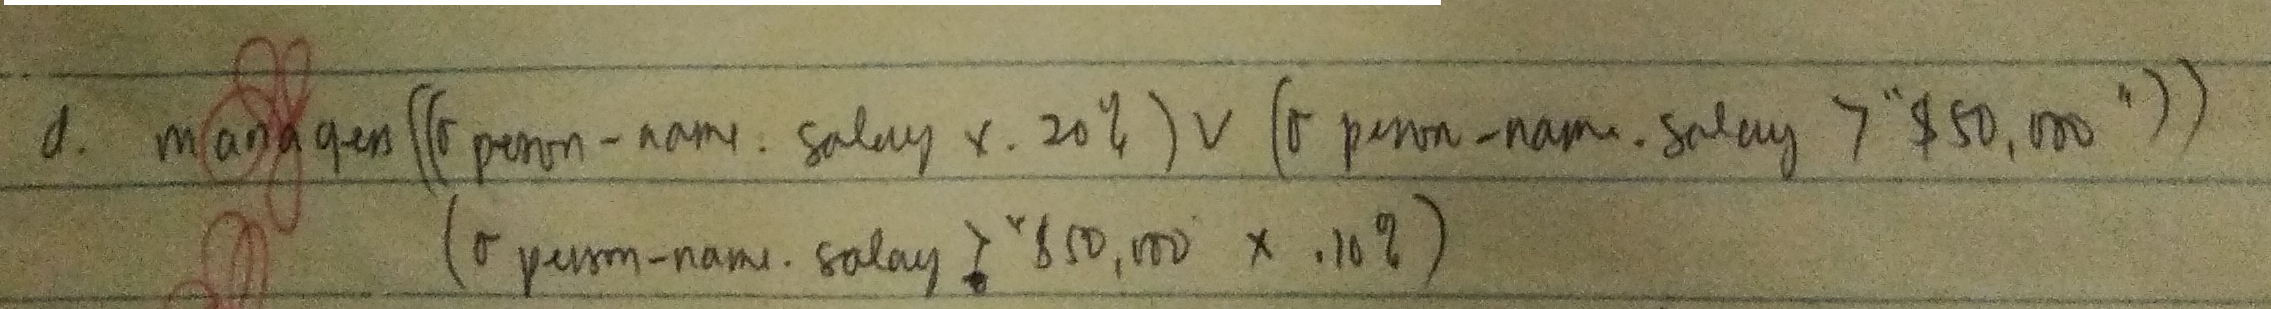 d. managers ((σ person-name. salary x .20%) ∨ (σ person-name. salary > "$50,000"))
(σ person-name. salary > "$50,000 x .10%)